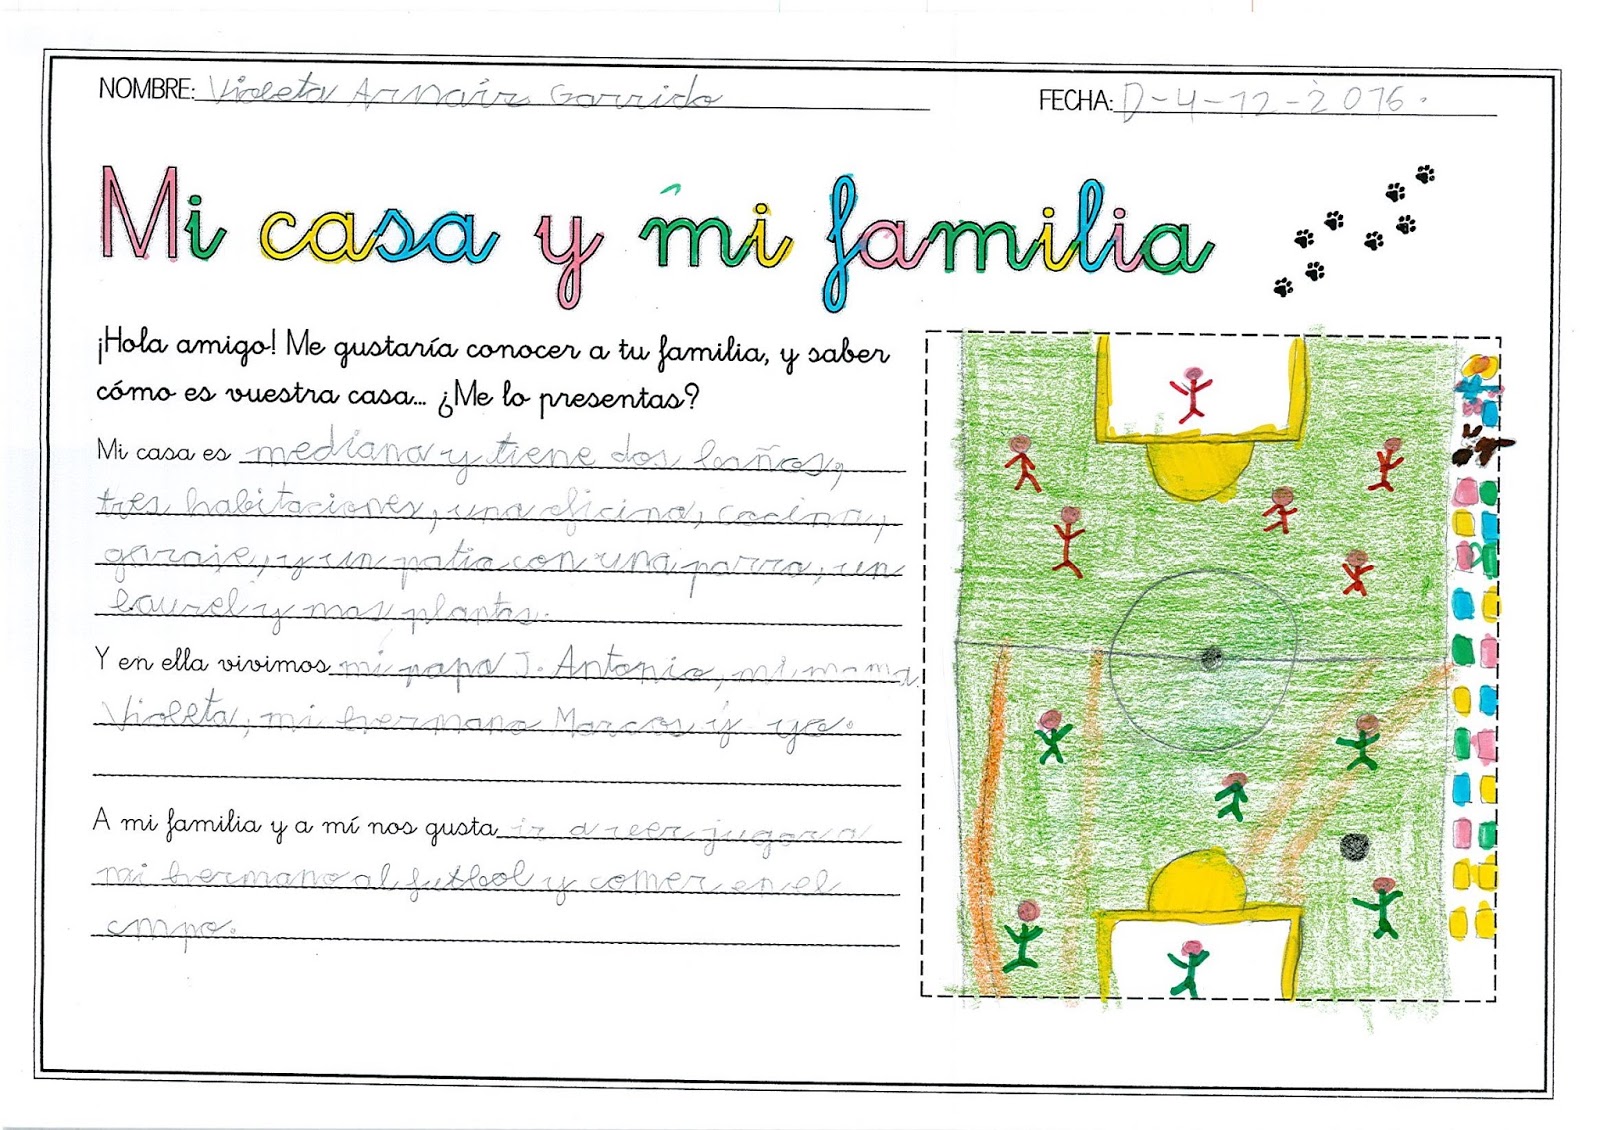 NOMBRE: Violeta Arnáiz Garrido FECHA: D-4-12-2016.
Mi casa y mi familia
¡Hola amigo! Me gustaría conocer a tu familia, y saber
cómo es vuestra casa... ¿Me lo presentas?
Mi casa es mediana y tiene dos baños,
tres habitaciones, una oficina, cocina,
garaje, y un patio con una parra, un
laurel y mas plantas.
Y en ella vivimos mi papa J. Antonio, mi mama
Violeta, mi hermano Marcos y yo.
A mi familia y a mí nos gusta ir a veer jugar a
mi hermano al futbol y comer en el
cmpo.